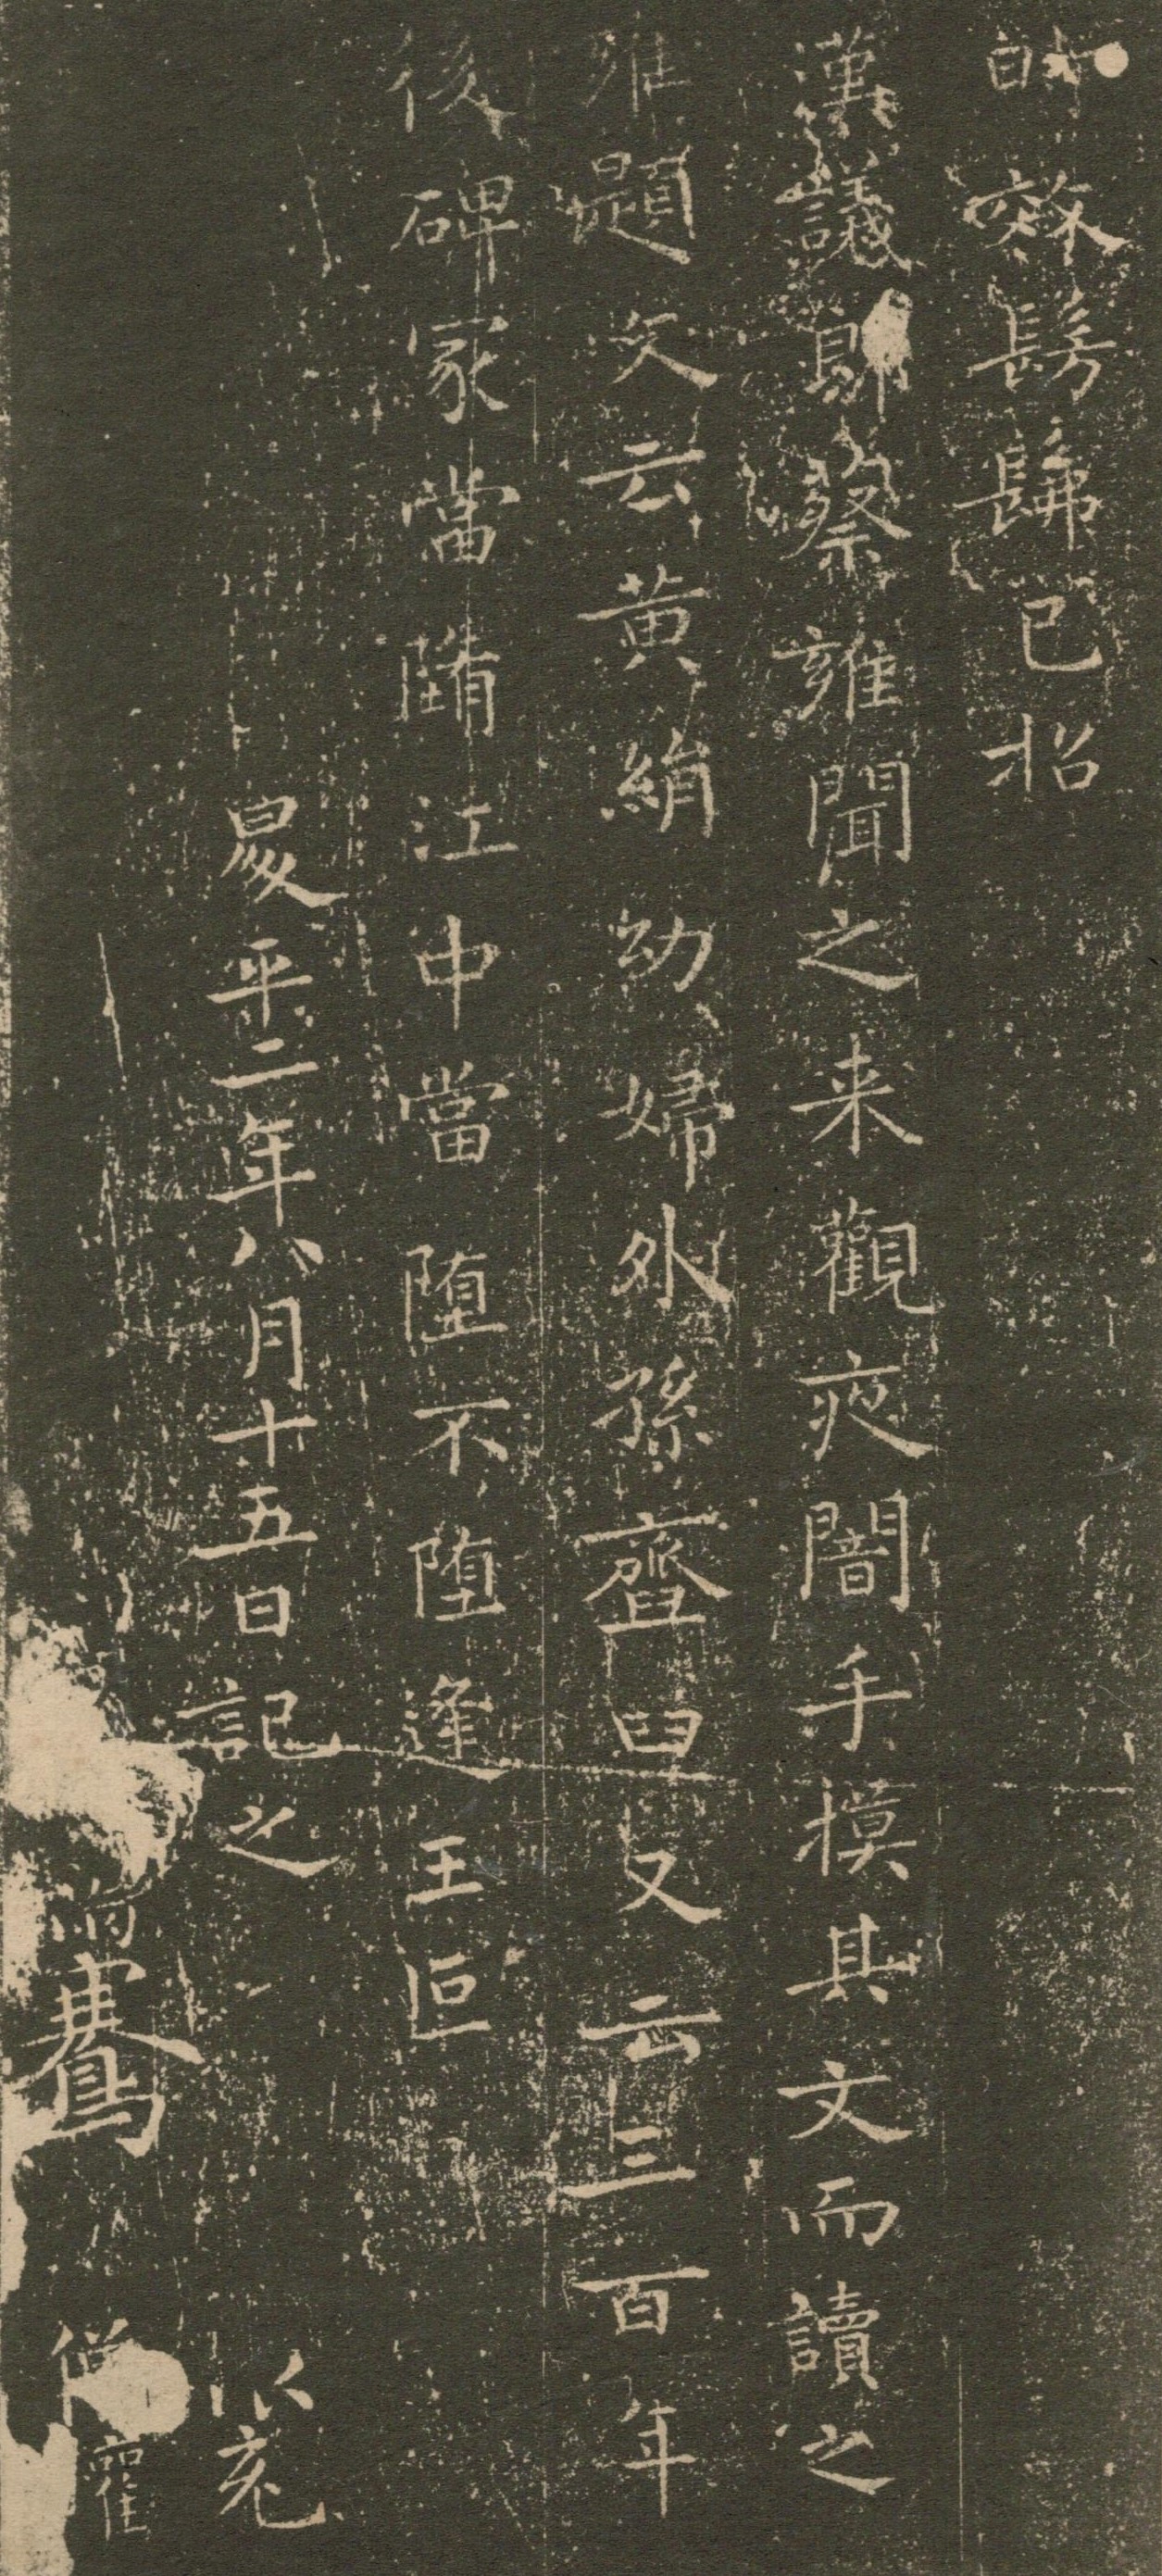 時效髣髴以招
漢議郎蔡雍聞之来觀夜闇手摸其文而讀之
雍題文云黃絹幼婦外孫齏臼又云三百年
後碑冢當墮江中當墮不墮逢王叵
昇平二年八月十五日記之
滿騫
僧權